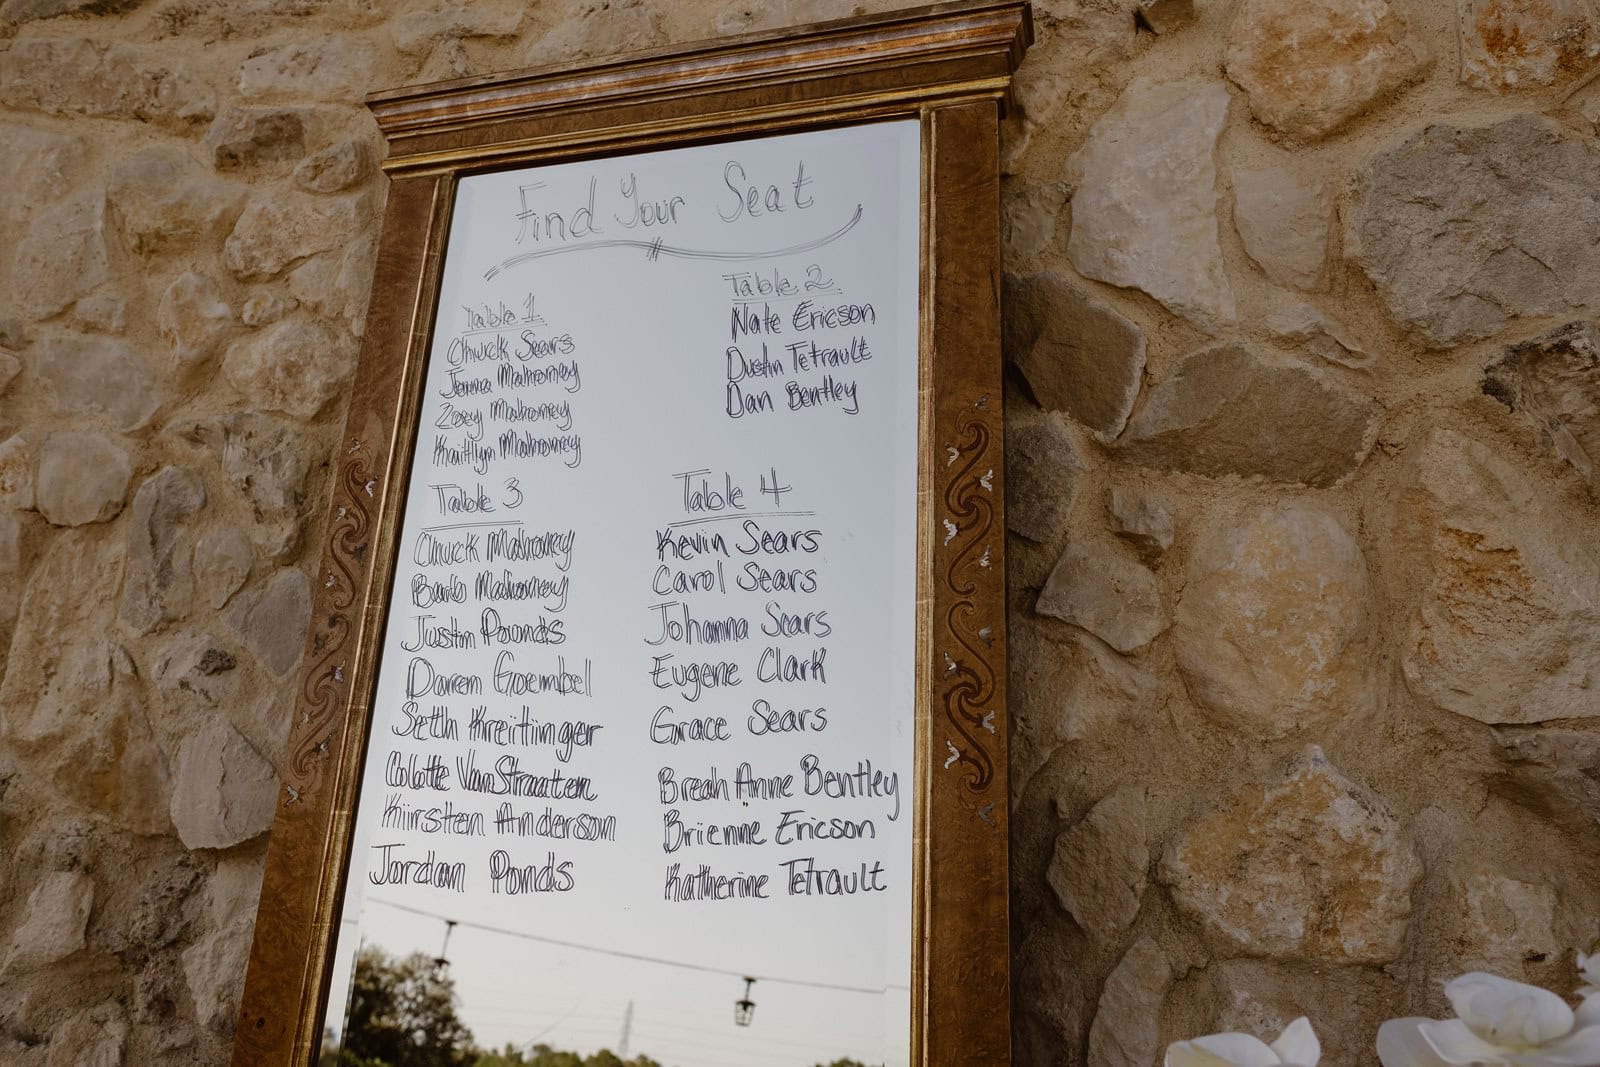 Find Your Seat
Table 1
Chuck Sears
Jenna Mahorney
Zoey Mahorney
Kaitlyn Mahorney
Table 2
Nate Ericson
Dustin Tetrault
Dan Bentley
Table 3
Chuck Mahorney
Barb Mahorney
Justin Pounds
Darren Groembel
Seth Kreitinger
Colette VanStraaten
Kiirsten Anderson
Jordan Ponds
Table 4
Kevin Sears
Carol Sears
Johanna Sears
Eugene Clark
Grace Sears
Breah Anne Bentley
Brienne Ericson
Katherine Tetrault